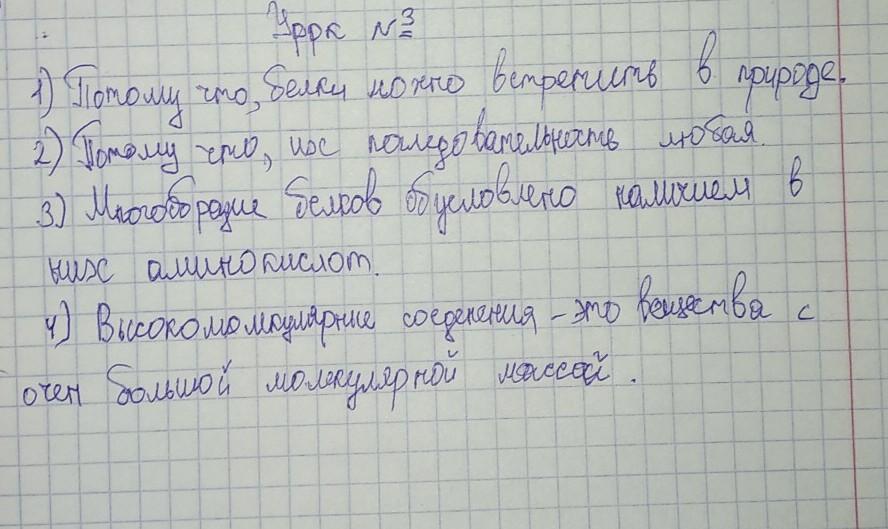 Уррк № 3
1) Потому что, белки можно встретить в природе.
2) Потому что, их последовательность любая.
3) Многобразие белков обусловлено наличием в
них аминокислот.
4) Высокомомкулярные соеденения – это вещества с
очен большой молекулярной массой.